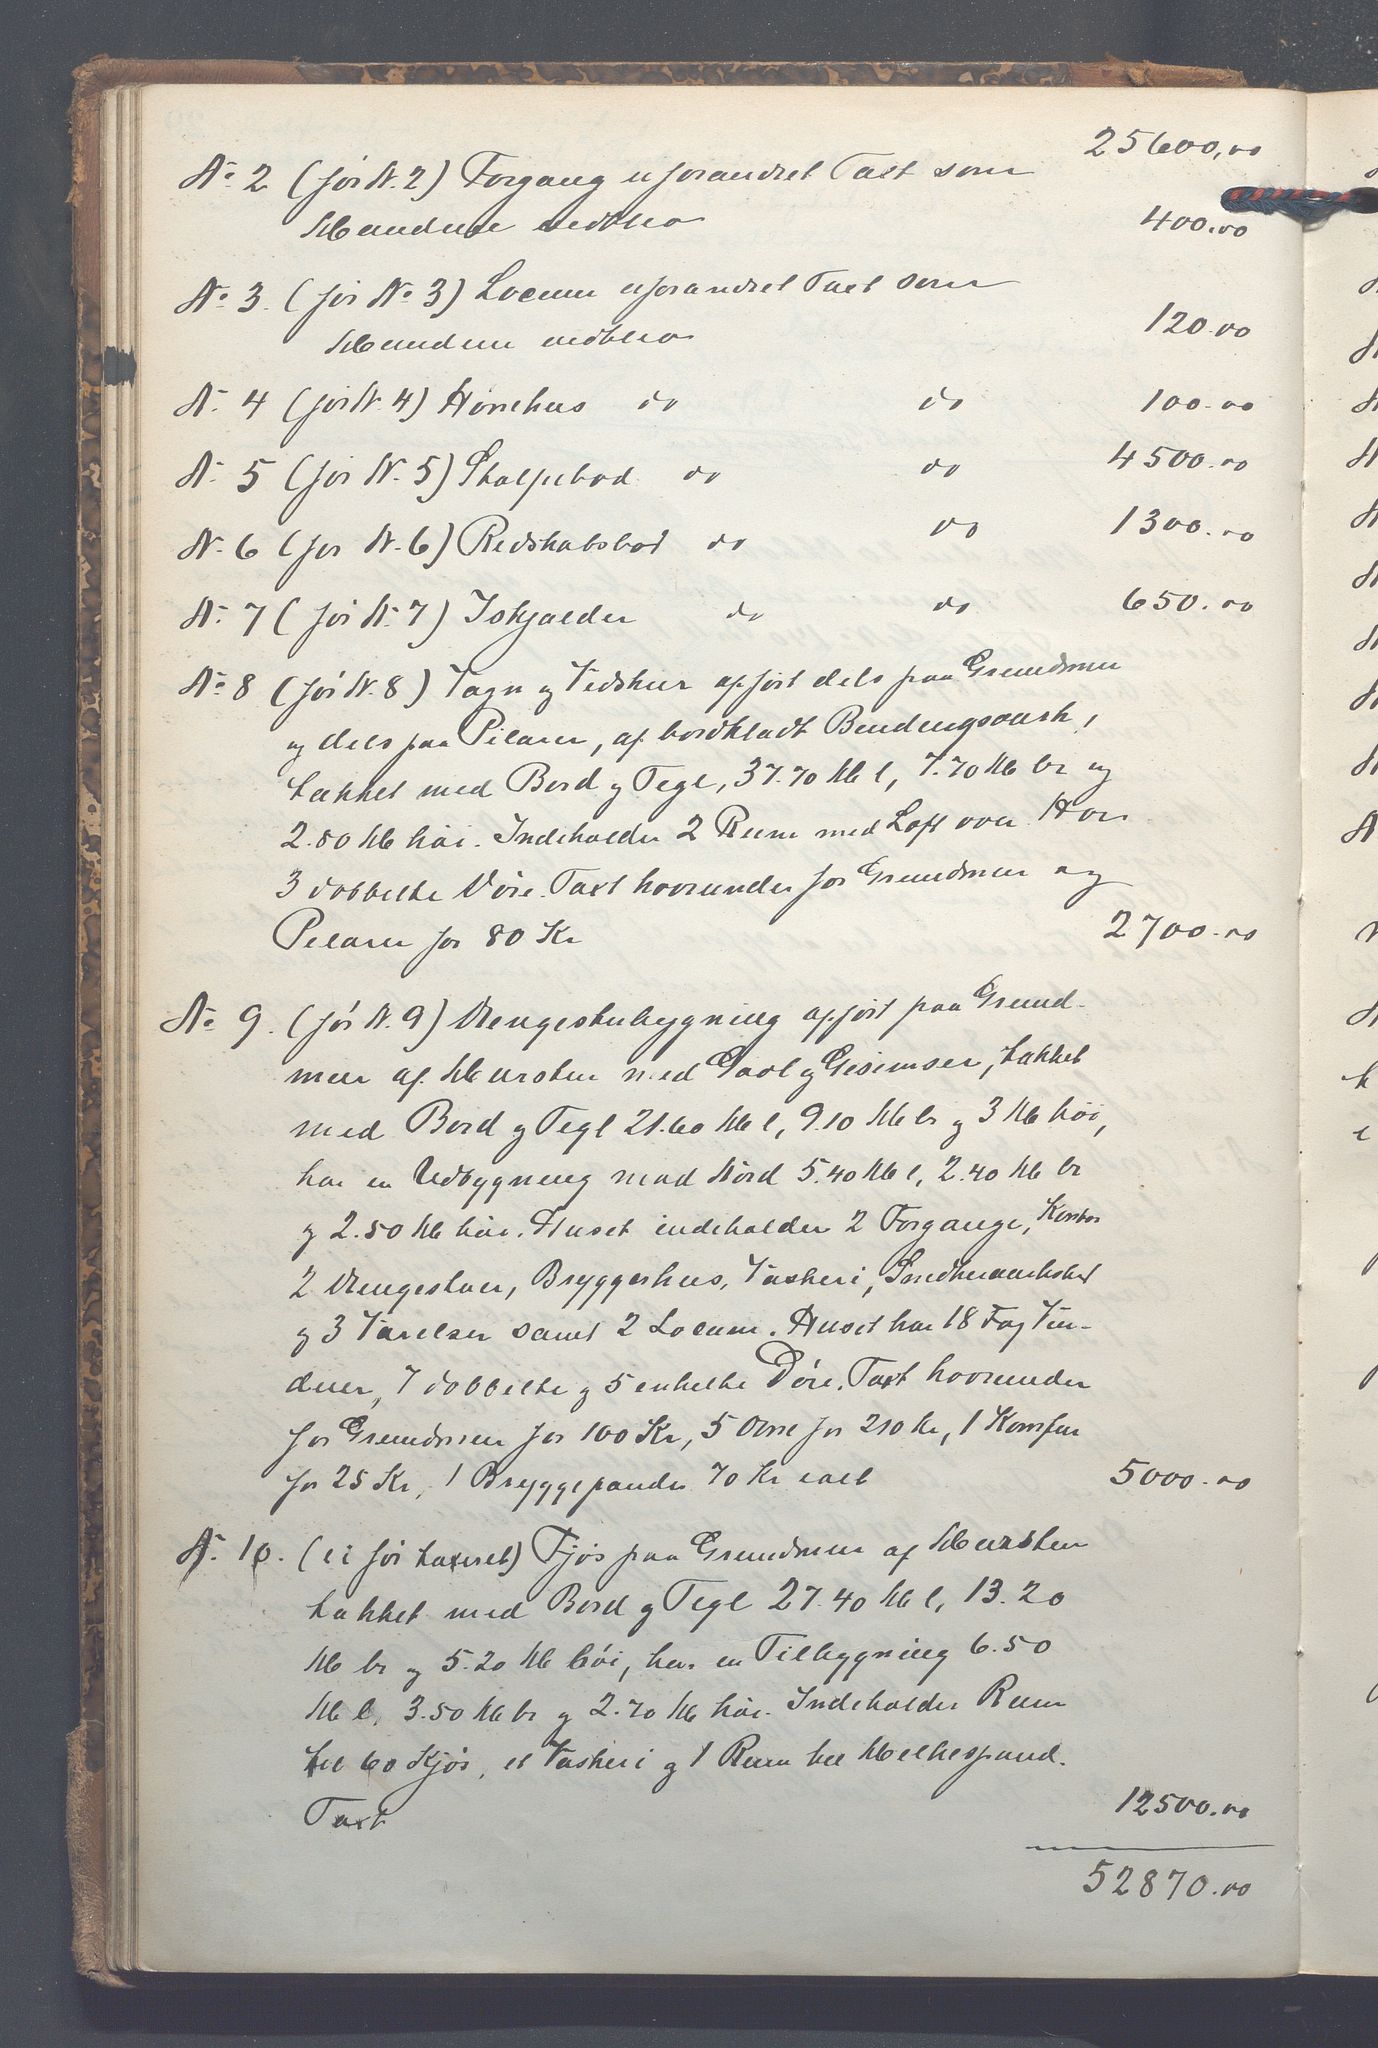 25600.00
No 2 (før N. 2) Forgang uforandret Taxt som
Mændene vedtba 400.00
No 3. (før No 3) Locum uforandret Taxt som
Mændene vedtba 120.00
N. 4 (før N. 4) Hønsehus do do 100.00
N. 5 (før N. 5) Stolpebod do do 4500.00
N. 6 (før N. 6) Redskabsbod do do 1300.00
N. 7 (før N. 7) Iskjælder do do 650.00
No 8 (før N. 8) Vogn og Vedskur opført dels paa Grundmur
og dels paa Pilarer, af bordklædt Bindingsværk,
tækket med Bord og Tegl, 37.70 M l, 7.70 M br og
2.80 M høi. Indeholder 2 Rum med Loft over. Har
3 dobbelte Døre. Taxt hvorunder for Grundmur og
Pilarer for 80 Kr 2700.00
No 9. (før N. 9) Drengestubygning opført paa Grund-
mur af Mursten med Gavl og Gesimser, tækket
med Bord og Tegl 21.60 M l, 9.10 M br og 3 M høi,
har en Udbygning mod Nord 5.40 M l, 2.40 M br
og 2.50 M høi. Huset indeholder 2 Forgange, Kontor
2 Drengestuer, Bryggerhus, Vaskeri, Snedkerværksted
og 3 Værelser samt 2 Locum. Huset har 18 Fag Vin-
duer, 7 dobbelte og 5 enkelte Døre. Taxt hvorunder
for Grundmur for 100 Kr, 5 Ovne for 210 Kr, 1 Komfur
for 25 Kr, 1 Bryggepande 70 Kr ialt 5000.00
N. 10. (ei før taxeret) Fjøs paa Grundmur af Mursten
tækket med Bord og Tegl 27.40 M l, 13.20
M br og 5.20 M høi, har en Tilbygning 6.50
M l, 3.50 M br og 2.70 M høi. Indeholder Rum
til 60 Kjør, et Vaskeri og 1 Rum til Melkespand.
Taxt 12500.00
52870.00